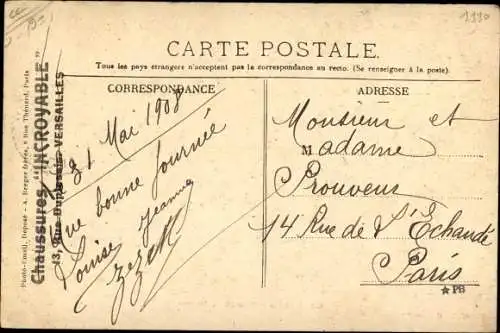 1990
CARTE POSTALE.
Tous les pays étrangers n'acceptent pas la correspondance au recto. (Se renseigner à la poste).
CORRESPONDANCE
31 Mai 1908
Une bonne journée
Louise Jeanne
ADRESSE
Monsieur et
M adame
Prouveur
14 Rue de L'Echaudé
Paris
★PB
Photo-Email, Déposé - A. Breger frères, 9 Rue Thénard, Paris
Chaussures "INCROYABLE"
13, Rue Duplessis, VERSAILLES